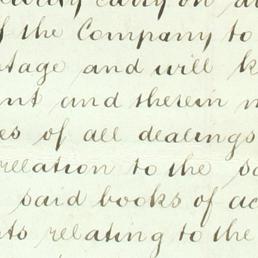 carry on
of the Company to
tage and will k
nt and therein m
es of all dealings
relation to the sa
said books of ac
ts relating to the